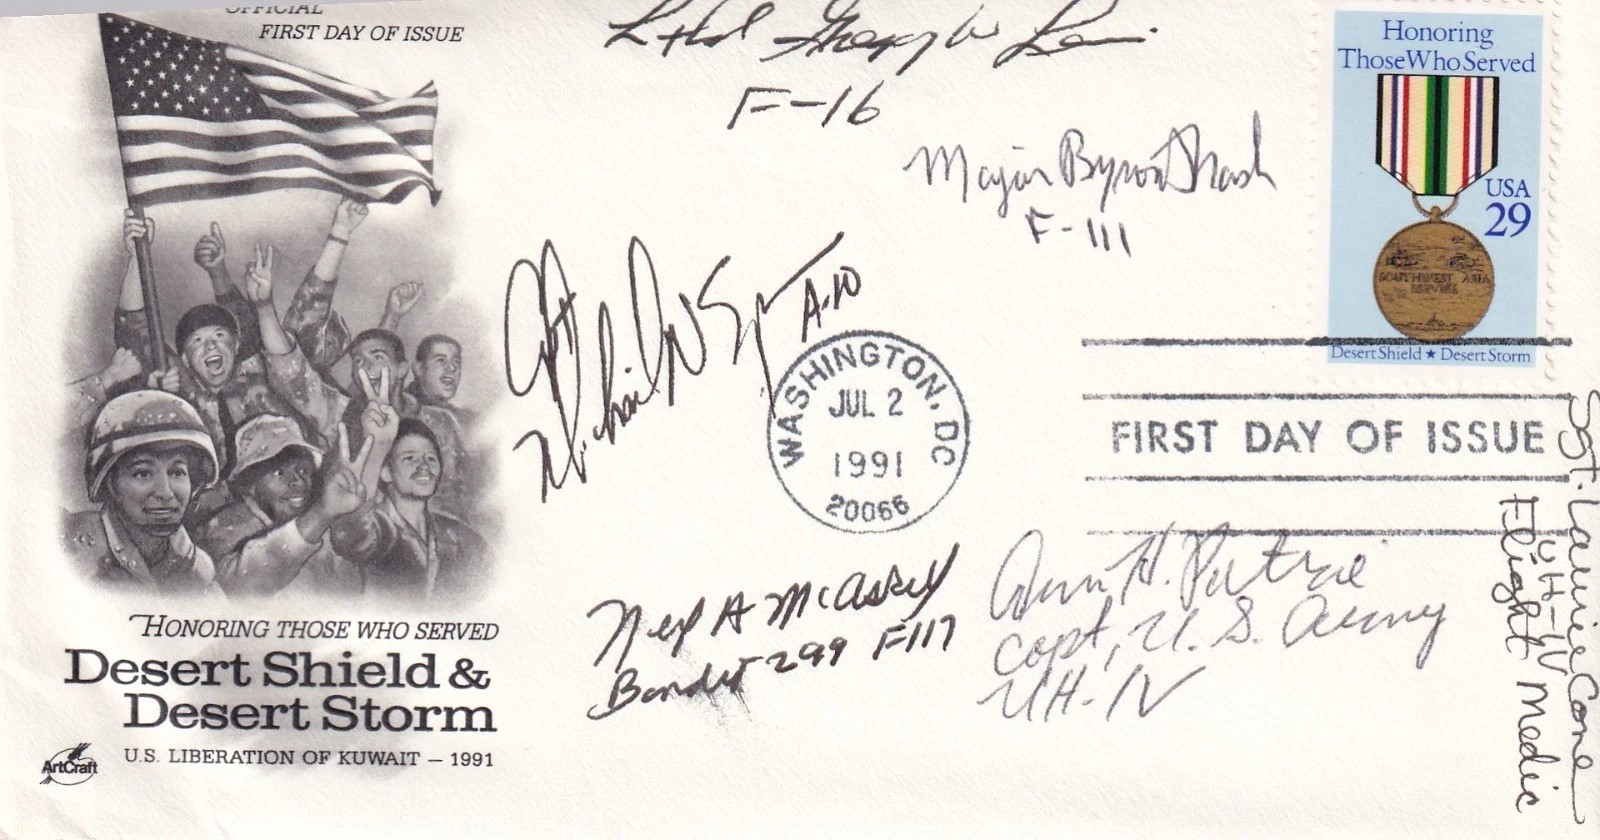 OFFICIAL
FIRST DAY OF ISSUE
F-16
Major Byron Nash
F-111
Honoring
Those Who Served
USA
29
SOUTHWEST ASIA
SERVICE
Desert Shield ★ Desert Storm
Michael
A-10
WASHINGTON, DC
JUL 2
1991
20066
FIRST DAY OF ISSUE
A McAskey
Bandit 299 F117
Ann H. Patrie
Capt, U.S. Army
UH-1V
Sgt. Laurie Cone
UH-1V
Flight Medic
HONORING THOSE WHO SERVED
Desert Shield &
Desert Storm
U.S. LIBERATION OF KUWAIT – 1991
ArtCraft